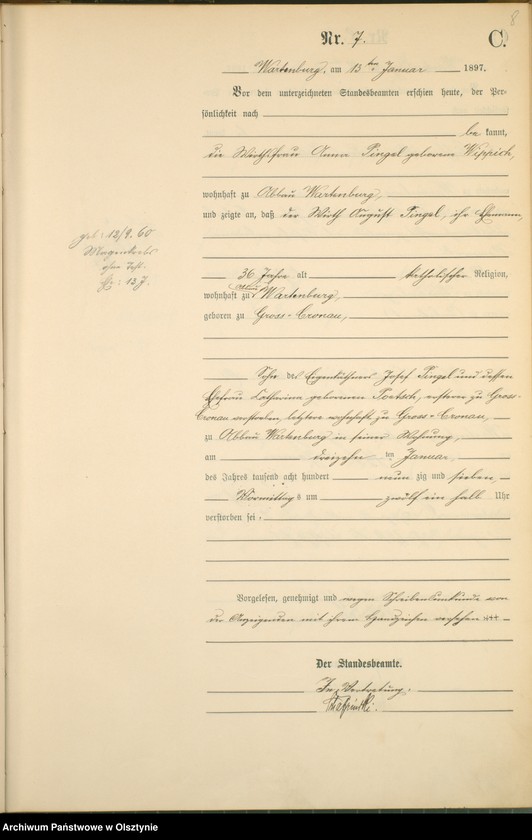 8
Nr. 7. C.
Wartenburg, am 13ten Januar 1897.
Vor dem unterzeichneten Standesbeamten erschien heute, der Per-
sönlichkeit nach
be kannt,
die Wirthsfrau Anna Pingel geborene Wippich,
wohnhaft zu Abbau Wartenburg,
und zeigte an, daß der Wirth August Pingel, ihr Ehemann,
geb: 12/9. 60
Magenkrebs
ohne Test.
36 Jahre alt katholischer Religion,
wohnhaft zu Abbau Wartenburg,
geboren zu Gross-Cronau,
Sohn des Eigenkäthners Josef Pingel und dessen
Ehefrau Catharina geborenen Poetsch, ersterer zu Gross-
Cronau verstorben, letztere wohnhaft zu Gross-Cronau,
zu Abbau Wartenburg in seiner Wohnung,
am dreizehn ten Januar
des Jahres tausend acht hundert neun zig und sieben,
Vormittags um zwölf ein halb Uhr
verstorben sei.
Vorgelesen, genehmigt und wegen Schreibensunkunde von
der Anzeigenden mit ihrem Handzeichen versehen +++
Der Standesbeamte.
In Vertretung.
Archiwum Państwowe w Olsztynie